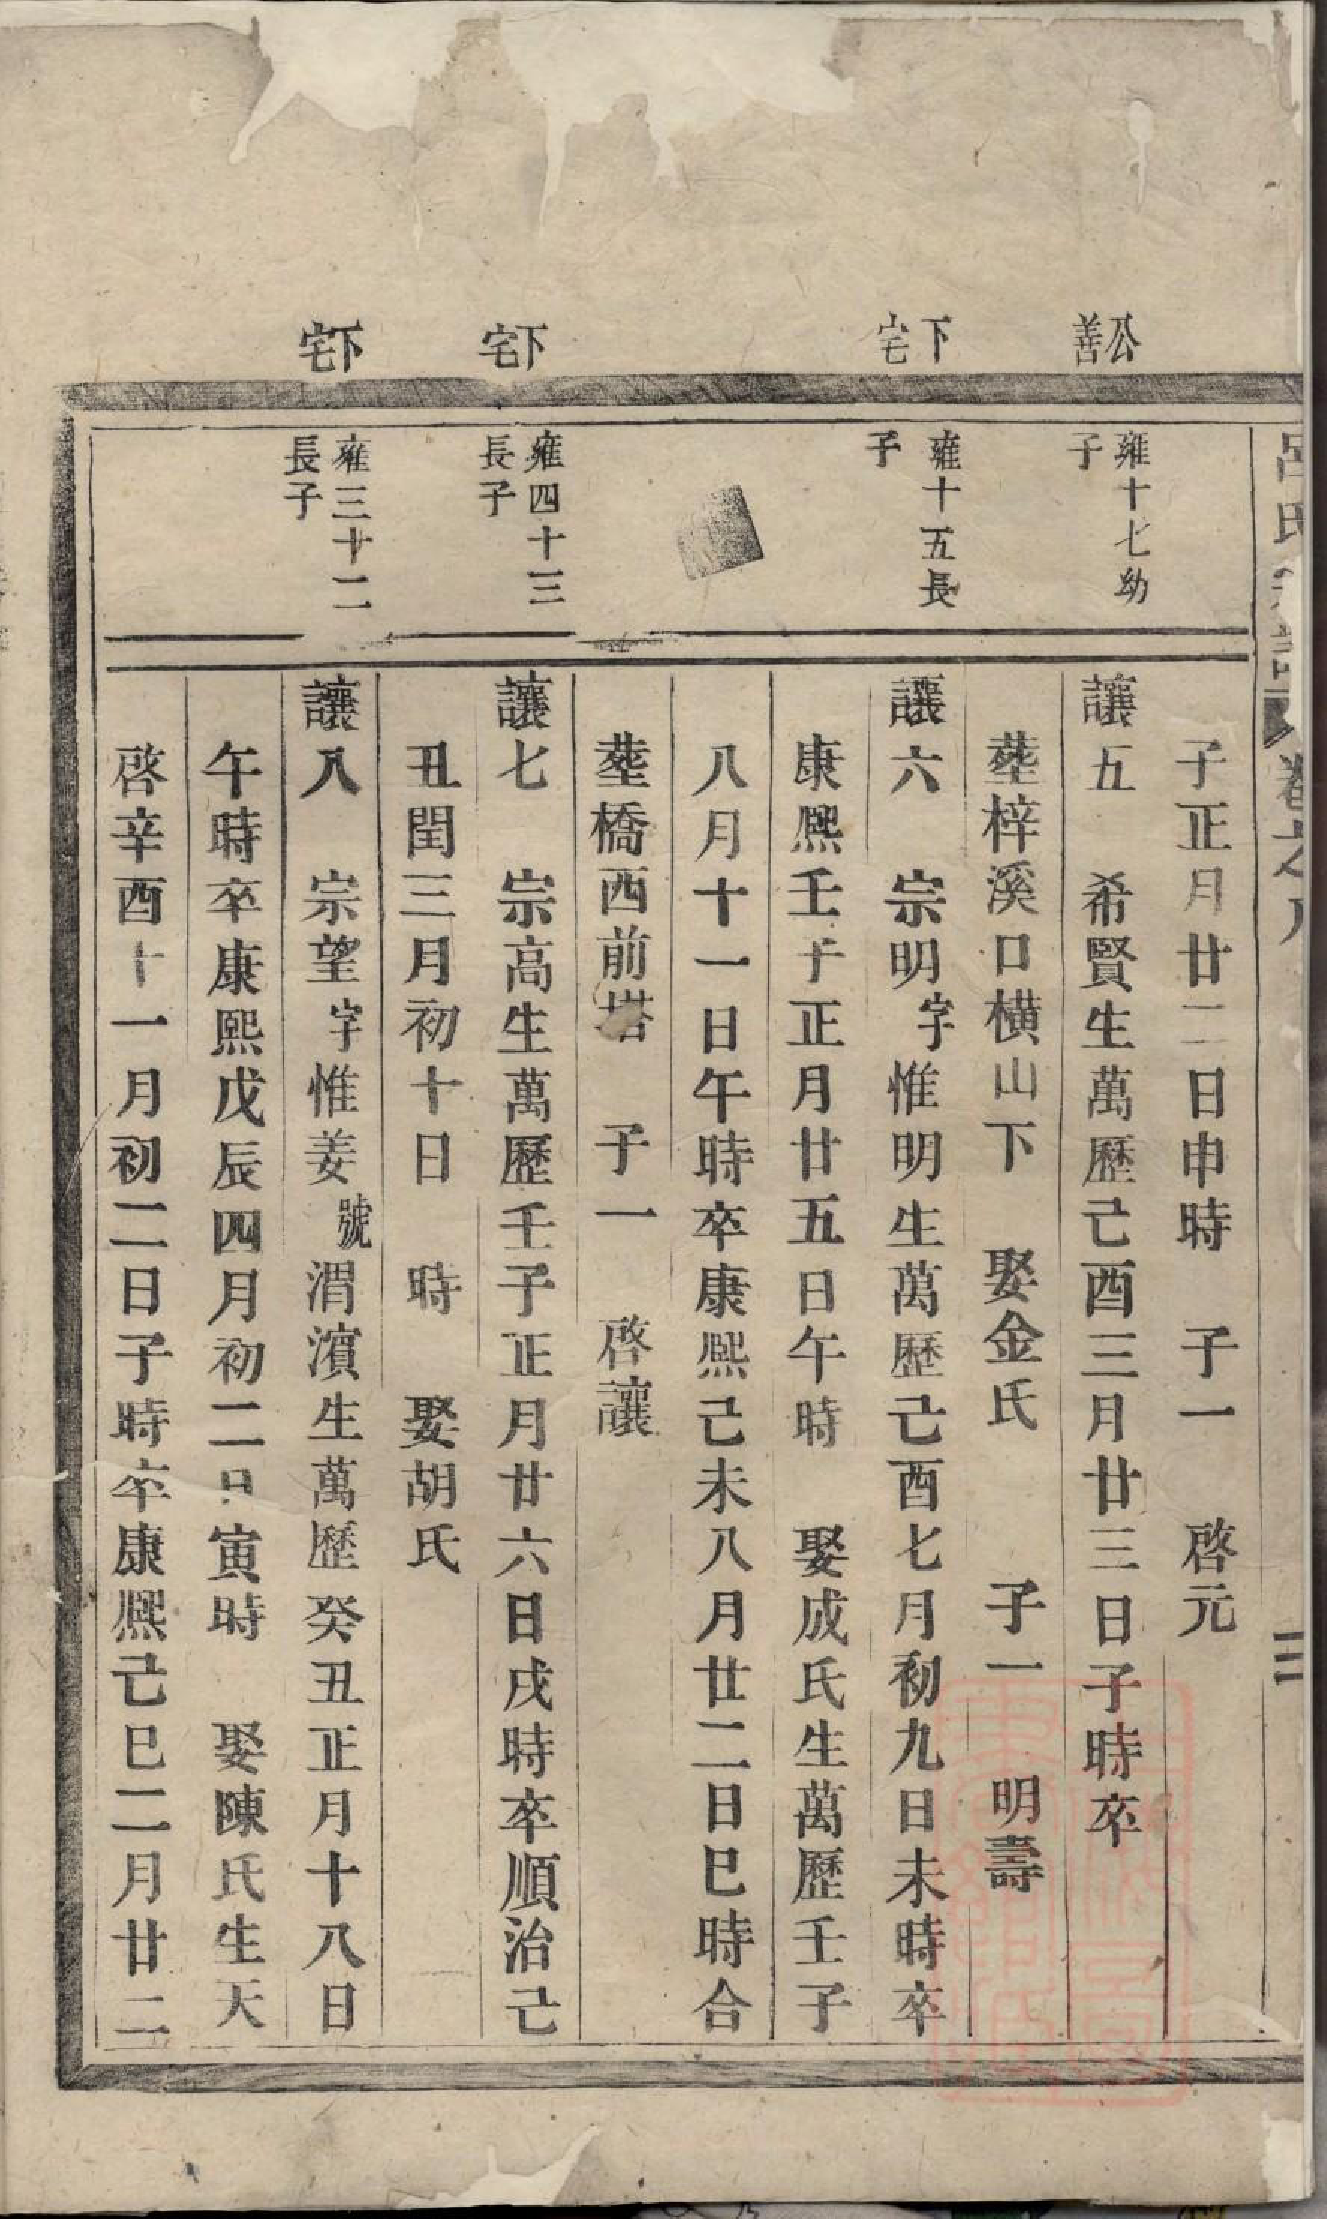 公善
下宅
下宅
下宅
雍十七幼
子
雍十五長
子
雍四十三
長子
雍三十二
長子
子正月廿二日申時 子一 啓元
讓五 希賢生萬歷己酉三月廿三日子時卒
塟梓溪口橫山下 娶金氏 子一 明壽
讓六 宗明字惟明生萬歷己酉七月初九日未時卒
康熙壬子正月廿五日午時 娶成氏生萬歷壬子
八月十一日午時卒康熙己未八月廿二日巳時合
塟橋西前塔 子一 啓讓
讓七 宗高生萬歷壬子正月廿六日戌時卒順治己
丑閏三月初十日 時 娶胡氏
讓八 宗望字惟姜號渭濱生萬歷癸丑正月十八日
午時卒康熙戊辰四月初二日寅時 娶陳氏生天
啓辛酉十一月初二日子時卒康熙己巳二月廿二